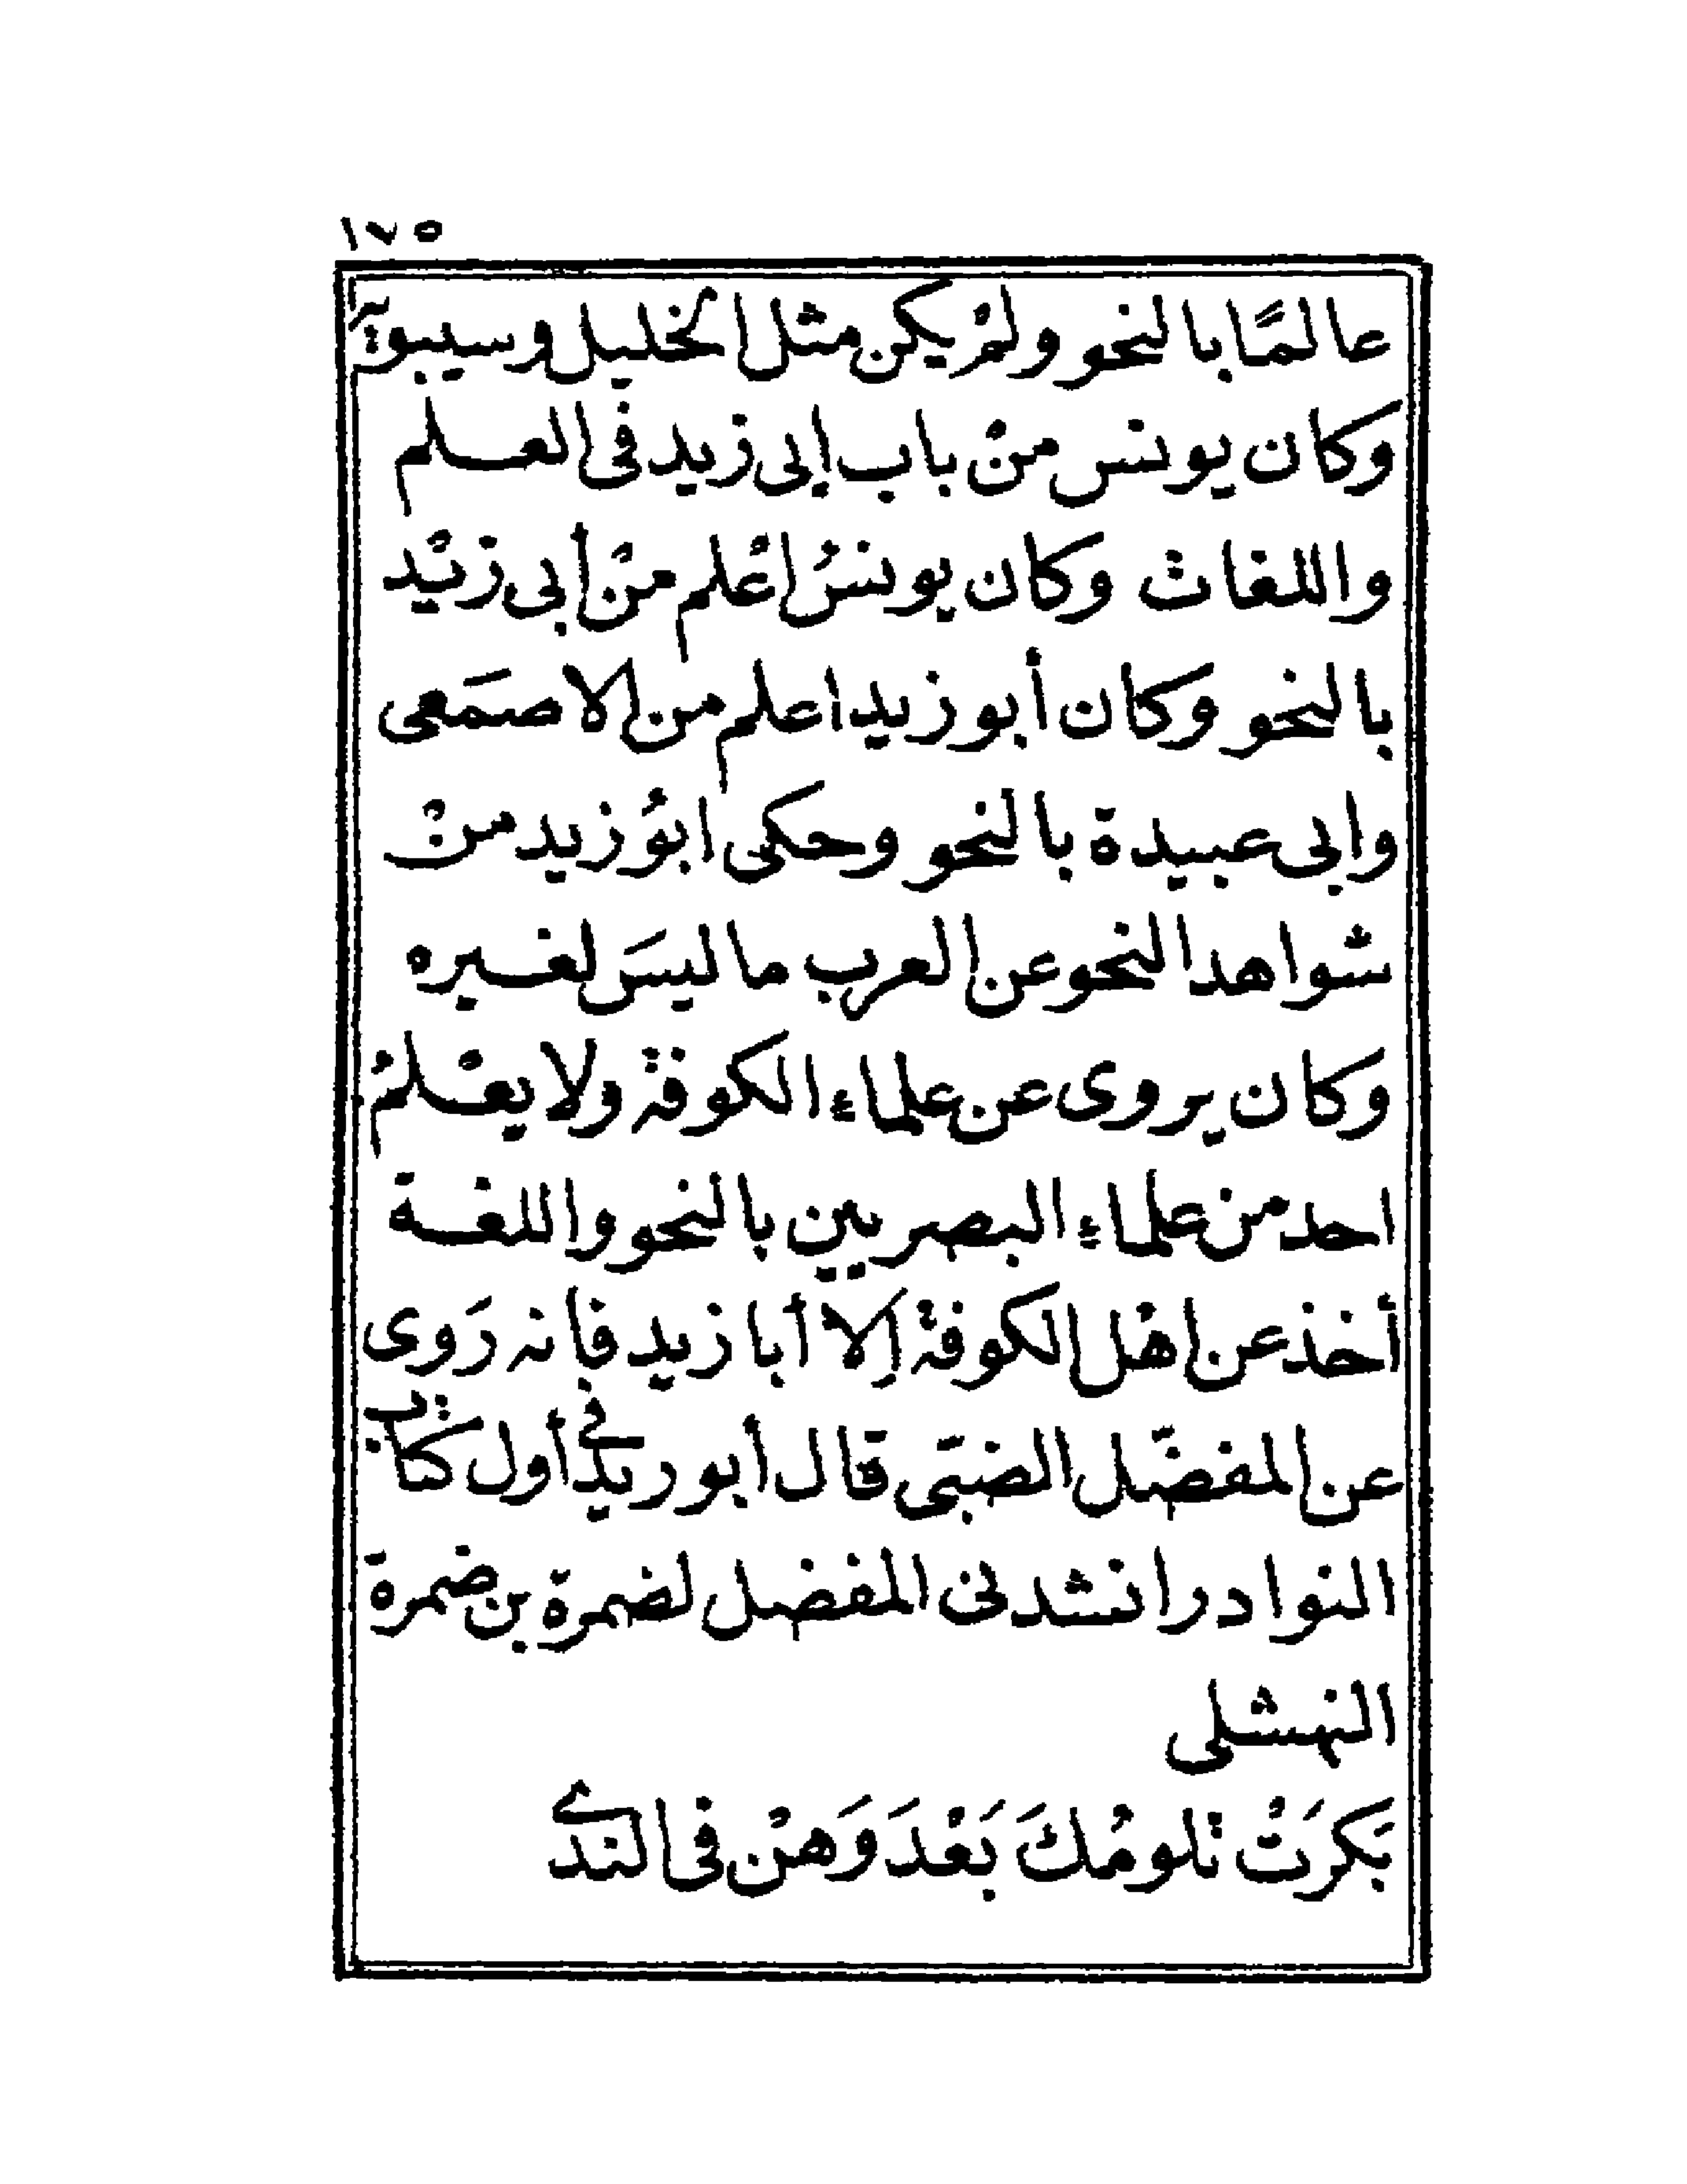 ١٧٥
عالمًا بالنحو ولمْ يكن مثل الخليل وسيبويه
وكان يونس منْ باب ابى زيد فى العلم
واللغات وكان يونسُ اعْلم منْ أبى زيْد
بالنحو وكان أبو زيد اعلم من الاصمَعى
وابى عبيدة بالنحو وحكى ابوُ زيد منْ
شواهد النحو عن العرب ما ليسَ لغيره
وكان يروى عن علماء الكوفة ولا يعْلمُ
احد من علماء البصريين بالنحو واللغة
أخذ عن اهْل الكوفة إلا أبا زيد فانه رَوى
عن المفضّل الضبّى قال أبو زيد فى أول كتاب
النوادر انشدنى المفضل لضمرة بن ضمرة
النهشلى
بَكرَتْ تلومُكَ بَعْدَ وَهنْ فى الندى